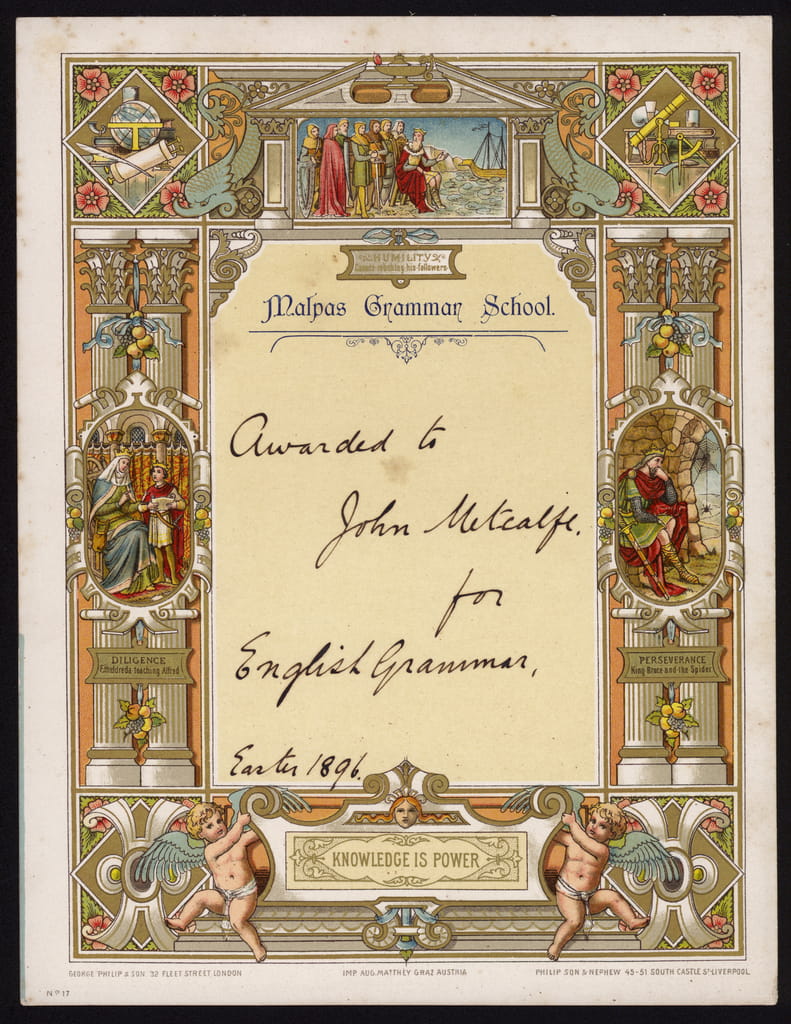 HUMILITY
Canute rebuking his followers
Malpas Grammar School.
Awarded to
John Metcalfe.
for
English Grammar,
Easter 1896.
DILIGENCE
Etheldreda teaching Alfred
PERSEVERANCE
King Bruce and the Spider
KNOWLEDGE IS POWER
GEORGE PHILIP & SON. 32 FLEET STREET, LONDON
IMP. AUG. MATTHEY GRAZ AUSTRIA
PHILIP SON & NEPHEW 45-51 SOUTH CASTLE ST LIVERPOOL
No 17